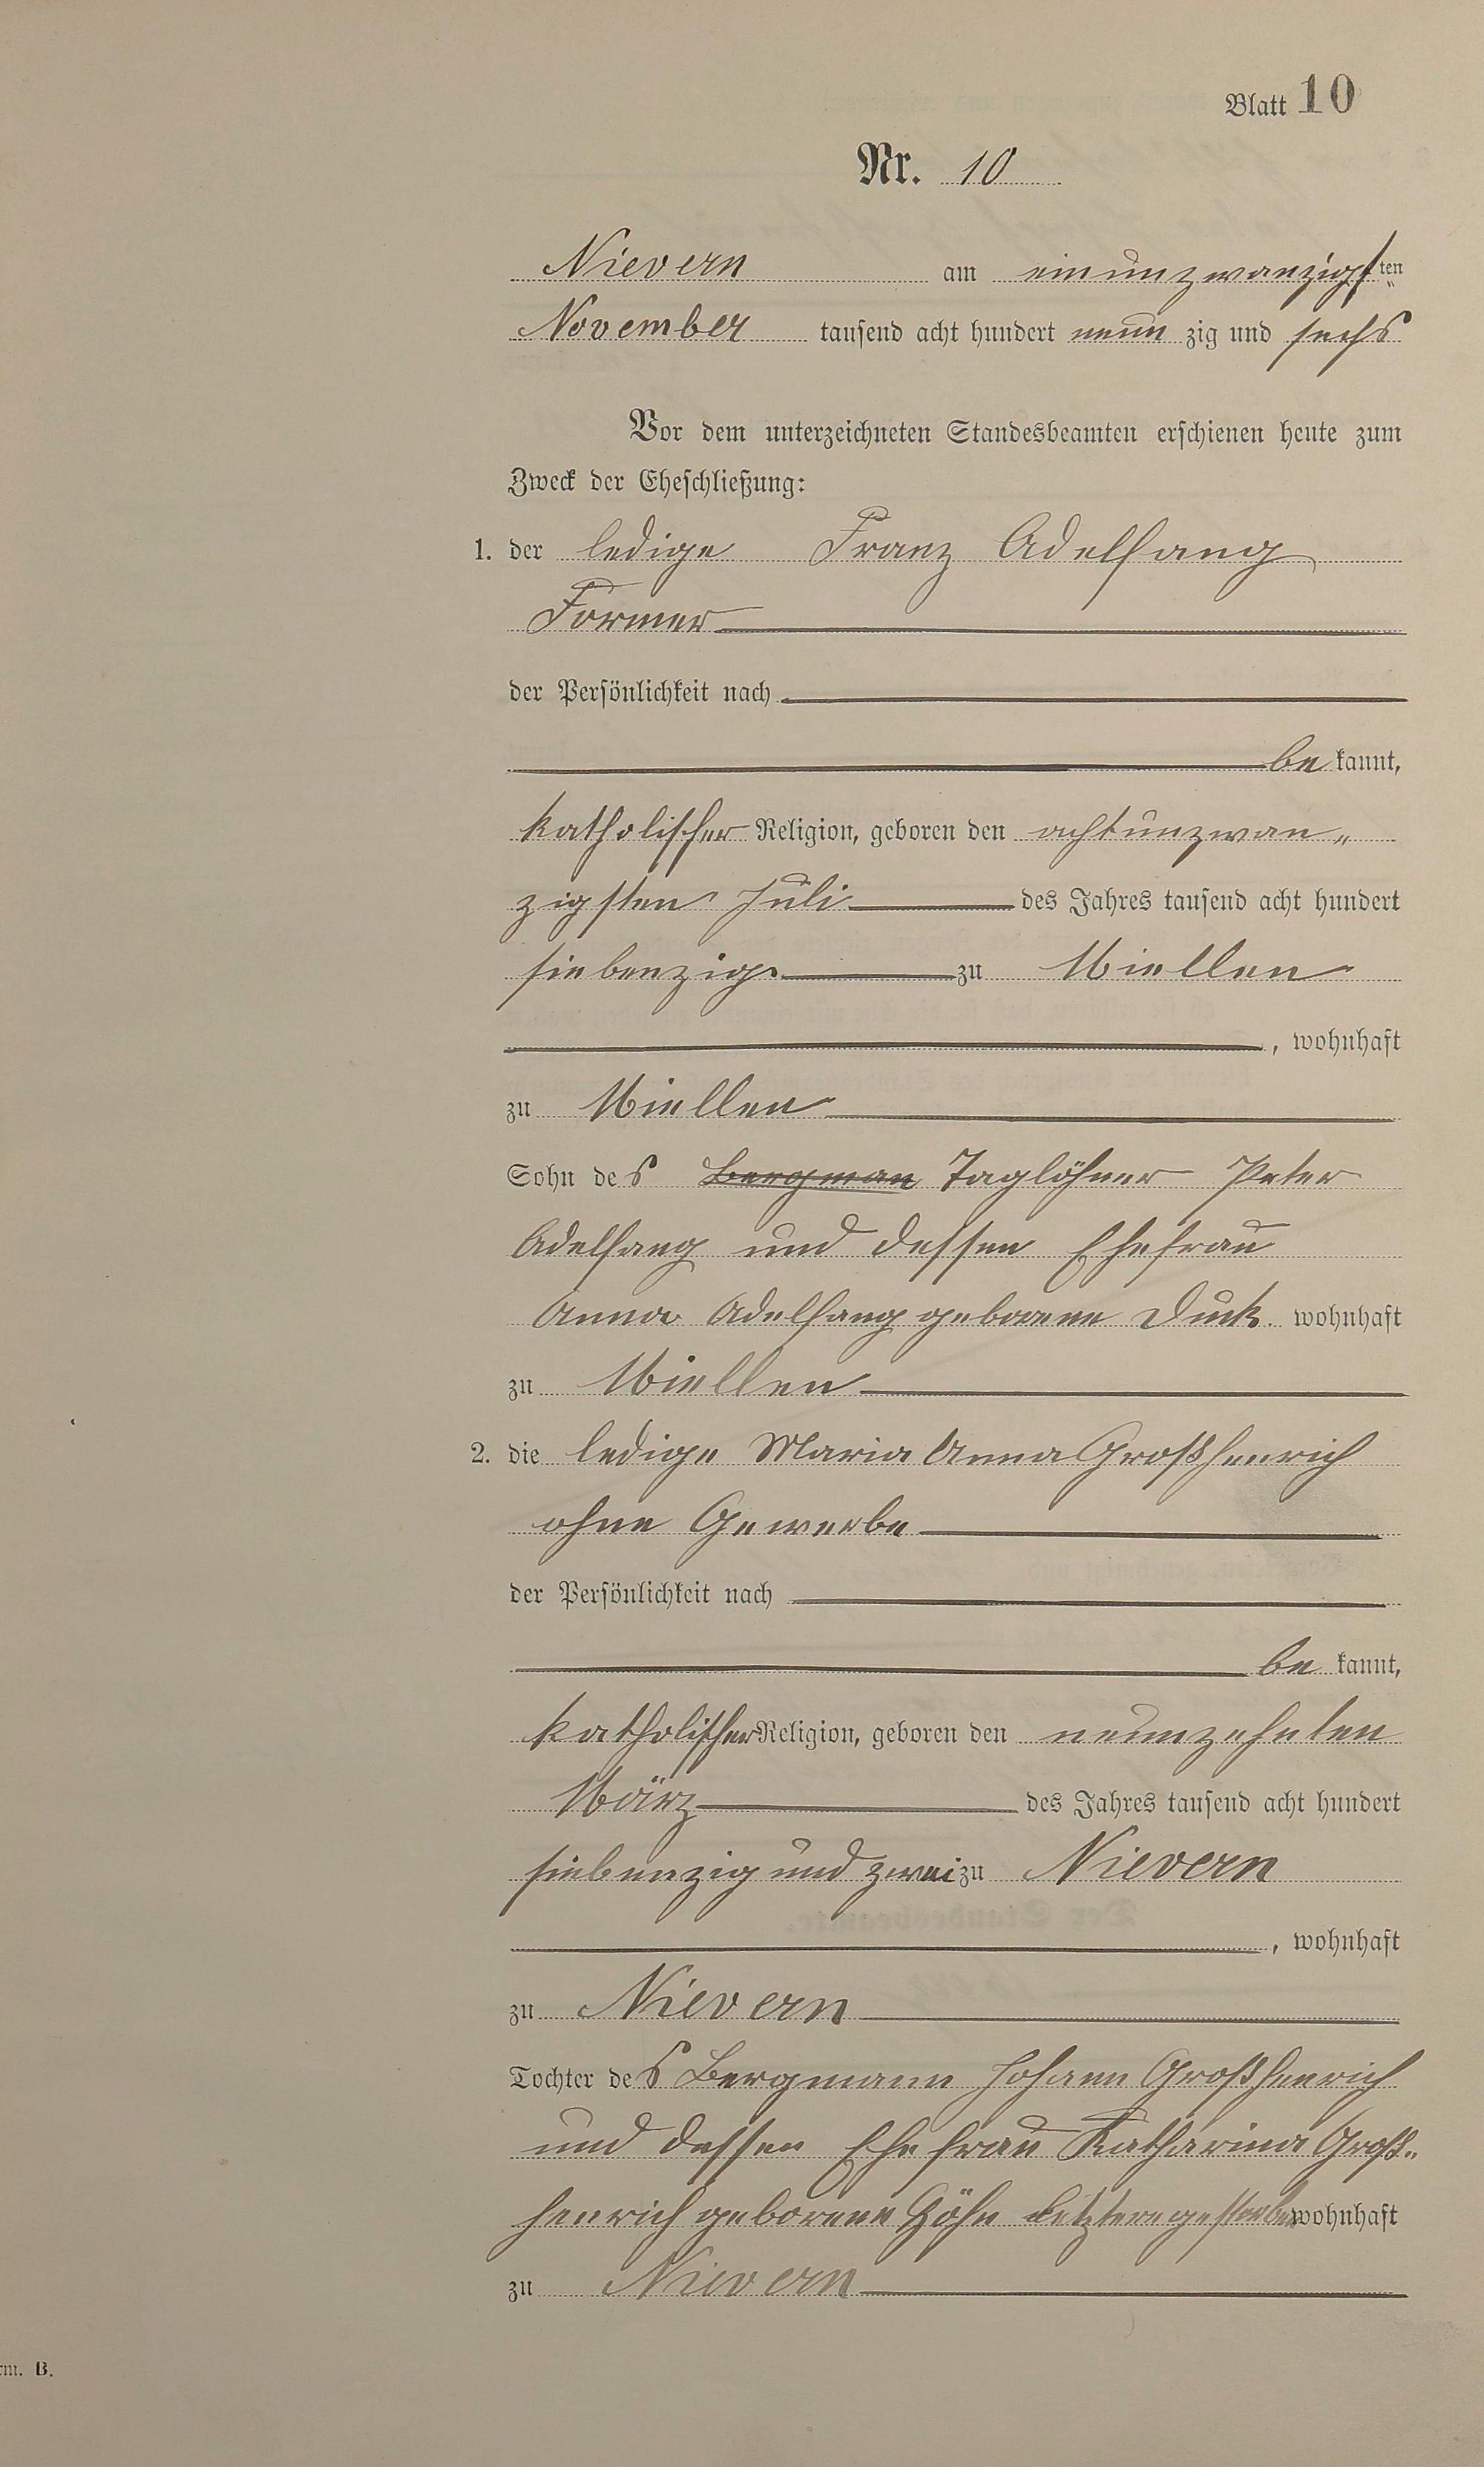 Blatt 10
Nr. 10
Nievern am einunzwanzigsten
November tausend acht hundert neun zig und sechs
Vor dem unterzeichneten Standesbeamten erschienen heute zum
Zweck der Eheschließung:
1. der ledige Franz Adelfang
Former
der Persönlichkeit nach
be kannt,
katholischer Religion, geboren den achtunzwan„
zigsten Juli des Jahres tausend acht hundert
siebenzig zu Miellen
, wohnhaft
zu Miellen
Sohn des Bergman Taglöhner Peter
Adelfang und dessen Ehefrau
Anna Adelfang geborene Duck wohnhaft
zu Miellen
2. die ledige Maria Anna Großhenrich
ohne Gewerbe
der Persönlichkeit nach
be kannt,
katholischer Religion, geboren den neunzehnten
März des Jahres tausend acht hundert
siebenzig und zwei zu Nievern
, wohnhaft
zu Nievern
Tochter des Bergmann Johann Großhenrich
und dessen Ehefrau Katharina Groß„
henrich geborene Höhn letztere gestorben wohnhaft
zu Nievern
rm. B.